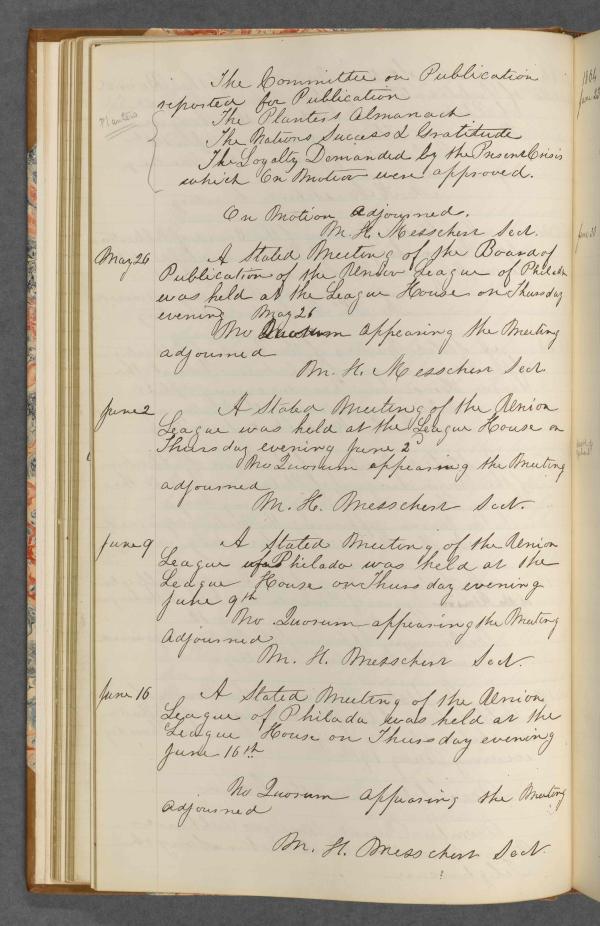 The Committee on Publication
reported for Publication
Planters
The Planters Almanach
The Nations Success & Gratitude
The Loyalty Demanded by the Present Crisis
which On Motion were approved.
On Motion adjourned.
M. H. Messchert Sect.
May 26
A Stated Meeting of the Board of
Publication of the Union League of Philada
was held at the League House on Thursday
evening May 26
No Quorum appearing the Meeting
adjourned
M. H. Messchert Sect
June 2
A Stated Meeting of the Union
League was held at the League House on
Thursday evening June 2
No Quorum appearing the Meeting
adjourned
M. H. Messchert Sect.
June 9
A Stated Meeting of the Union
League of Philada was held at the
League House on Thursday evening
June 9th
No Quorum appearing the Meeting
adjourned
M. H. Messchert Sect.
June 16
A Stated Meeting of the Union
League of Philada was held at the
League House on Thursday evening
June 16th
No Quorum appearing the Meeting
adjourned
M. H. Messchert Sect.
1864
June 23
June 30